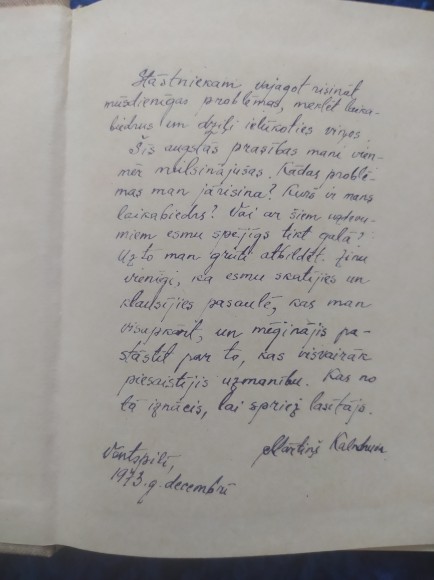 Stāstniekam vajagot risināt
mūsdienīgas problēmas, meklēt laika-
biedrus un dziļi ielūkoties viņos.
Šīs augstās prasības mani vien-
mēr mulsinājušas. Kādas problē-
mas man jārisina? Kurš ir mans
laikabiedrs? Vai ar šiem uzdevu-
miem esmu spējīgs tikt galā?
Uz to man grūti atbildēt. Zinu
vienīgi, ka esmu skatījies un
klausījies pasaulē, kas man
visapkārt, un mēģinājis pa-
stāstīt par to, kas visvairāk
piesaistījis uzmanību. Kas no
tā iznācis, lai spriež lasītājs.
Mārtiņš Kalndruva
Ventspilī,
1973. g. decembrī